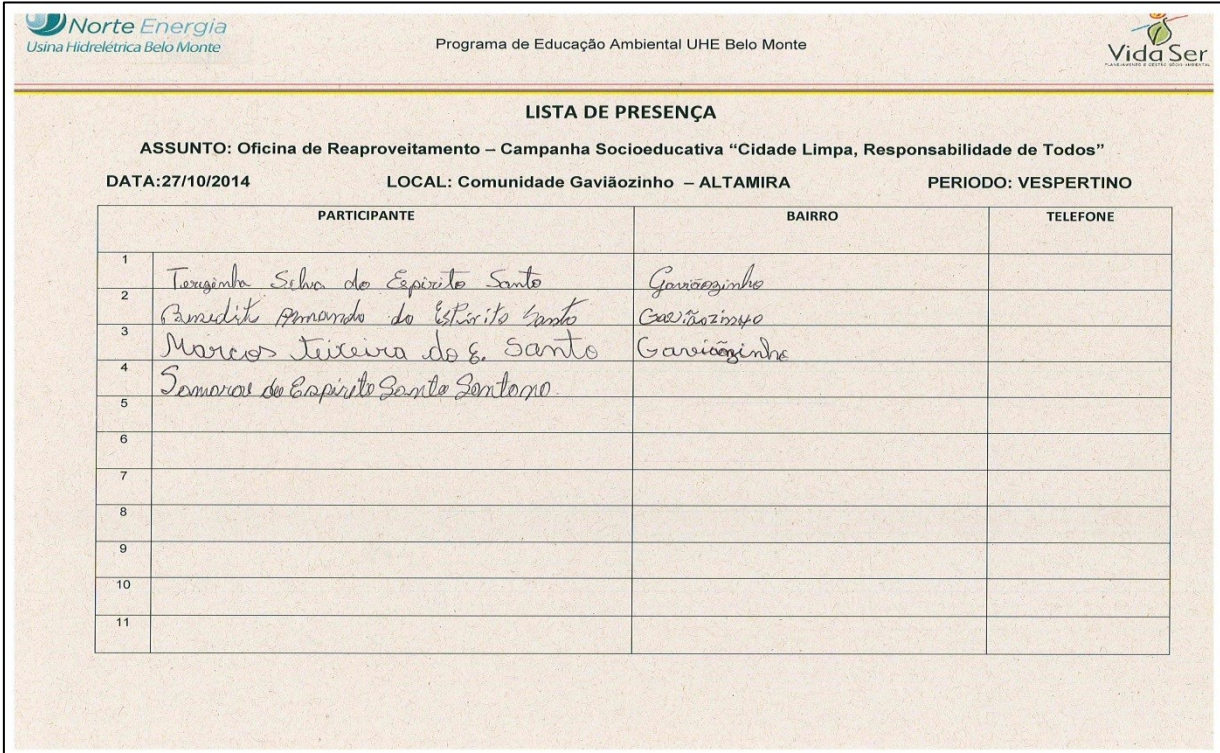 Norte Energia
Usina Hidrelétrica Belo Monte
Programa de Educação Ambiental UHE Belo Monte
Vida Ser
LISTA DE PRESENÇA
ASSUNTO: Oficina de Reaproveitamento – Campanha Socioeducativa “Cidade Limpa, Responsabilidade de Todos”
DATA:27/10/2014 LOCAL: Comunidade Gaviãozinho – ALTAMIRA PERIODO: VESPERTINO
PARTICIPANTE BAIRRO TELEFONE
1 Terezinha Silva do Espirito Santo Gaviãozinho
2 Benedito do Espirito Santo Gaviãozinho
3 Marcos Teixeira do E. Santo Gaviãozinho
4 do Espirito Santo
5
6
7
8
9
10
11